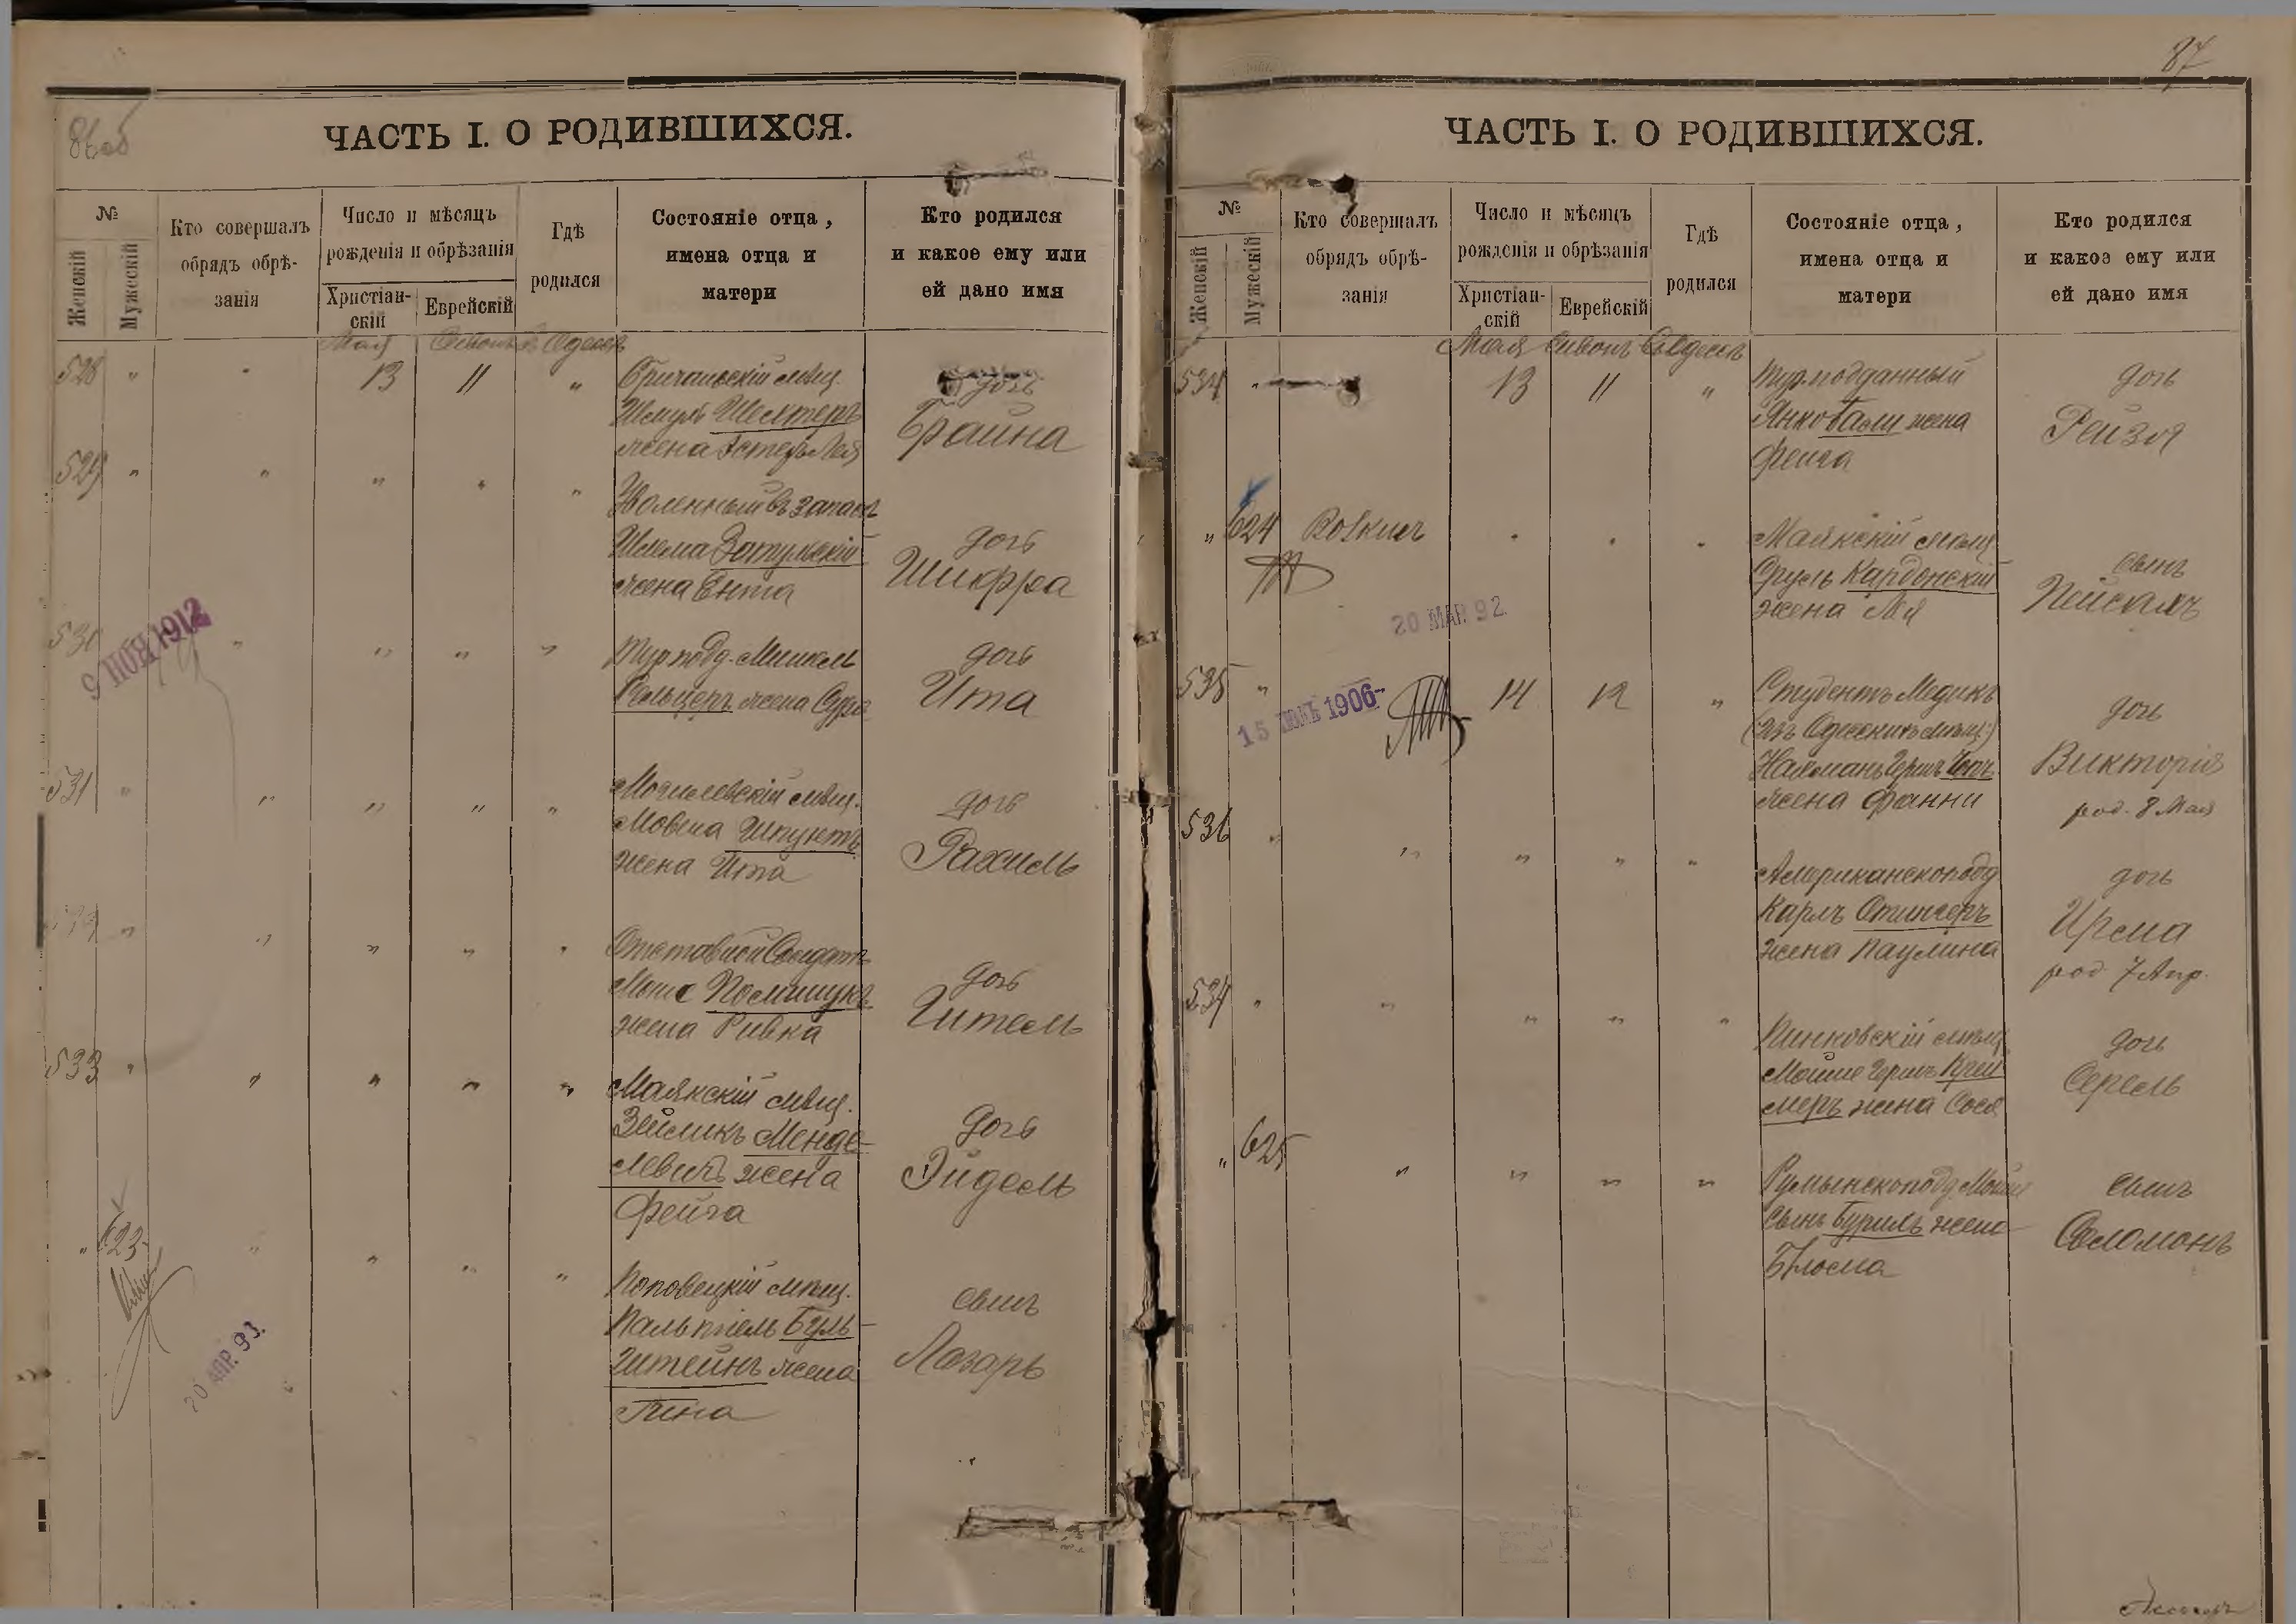 86об
ЧАСТЬ I. О РОДИВШИХСЯ.
№
Женскій
Мужескій
Кто совершалъ
обрядъ обрѣ-
занія
Число и мѣсяцъ
рожденія и обрѣзанія
Христіан-
скій
Еврейскій
Гдѣ
родился
Состояніе отца,
имена отца и
матери
Кто родился
и какое ему или
ей дано имя
Мая Сивонъ Одессѣ
528 " 13 11 " Бричанскій мѣщ. дочь
Шмуль Шехтеръ Брайна
жена Эстеръ Лея
529 " " " " "
Уволенный въ запасъ
Шлема Затульскій дочь
жена Ента Шифра
530 " " " "
9 НОЯ 1912
Тур подд. Михель дочь
Сельцеръ жена Сура Ита
531 " " " " "
Могилевскій мѣщ. дочь
Мовша Шпунтъ Рахиль
жена Ита
" " " " "
Отставной Солдатъ дочь
Полищукъ Гитель
жена Ривка
533 " " " " "
Маякскій мѣщ.
Зейликъ Менде- дочь
левичъ жена Эйдель
Фейга
" 623 " " " "
20 АПР. 93.
Поповецкій мѣщ. сынъ
Пальтіель Буль- Лазарь
штейнъ жена
Гина
87
ЧАСТЬ I. О РОДИВШИХСЯ.
№
Женскій
Мужескій
Кто совершалъ
обрядъ обрѣ-
занія
Число и мѣсяцъ
рожденія и обрѣзанія
Христіан-
скій
Еврейскій
Гдѣ
родился
Состояніе отца,
имена отца и
матери
Кто родился
и какое ему или
ей дано имя
Мая Сивонъ Одессѣ
534 " 13 11 " Тур. подданный дочь
Янко жена Рейзя
Фейга
" 624 Волкисъ " " " Маякскій мѣщ. сынъ
Сруль Кардонскій Пейсахъ
жена Лея
20 МАР. 92
535 " 14 12 " Студентъ Медикъ дочь
15 ІЮНЬ 1906
(изъ Одесскихъ мѣщ.)
Нахманъ Герш Викторія
жена Фанни род. 8 Мая
536 " " " " "
Американскоподд дочь
Карлъ Отингеръ Ирма
жена Паулина род. 7 Апр.
537 " " " " "
Пинковскій мѣщ. дочь
Мойше Гершъ Крей Серель
меръ жена Сося
" 625 " " " "
Румынскоподд Мойше сынъ
Сынъ Бурихъ жена Соломонъ
Блюма